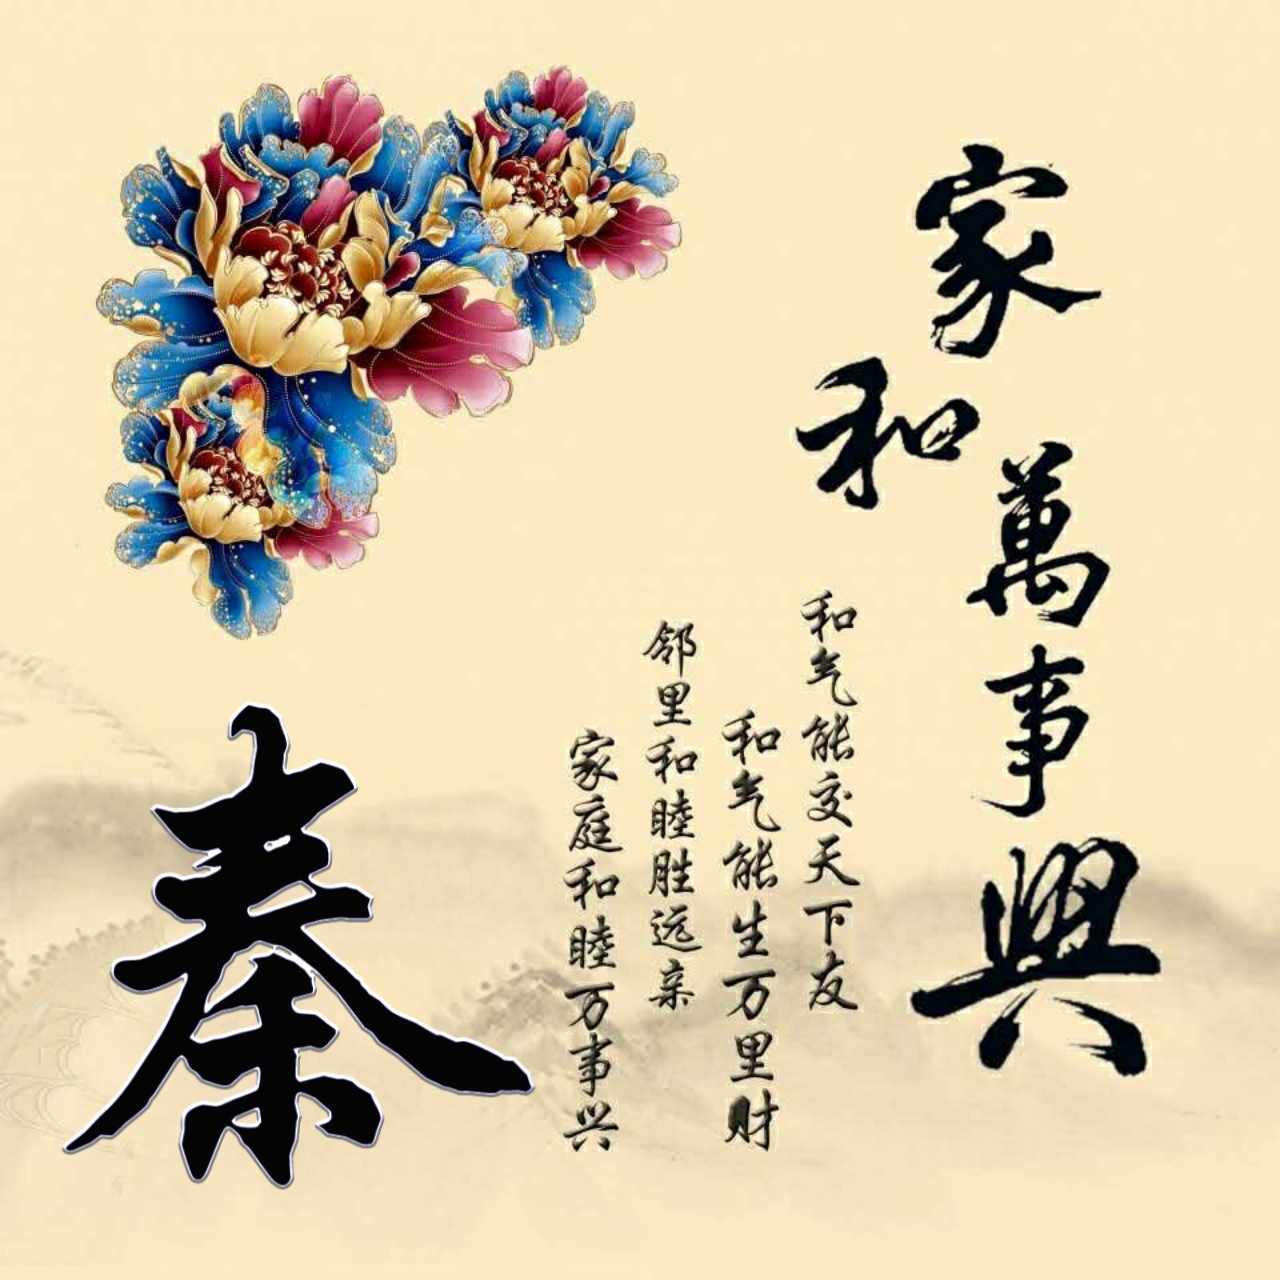 家和萬事興
和气能交天下友
和气能生万里财
邻里和睦胜远亲
家庭和睦万事兴
秦